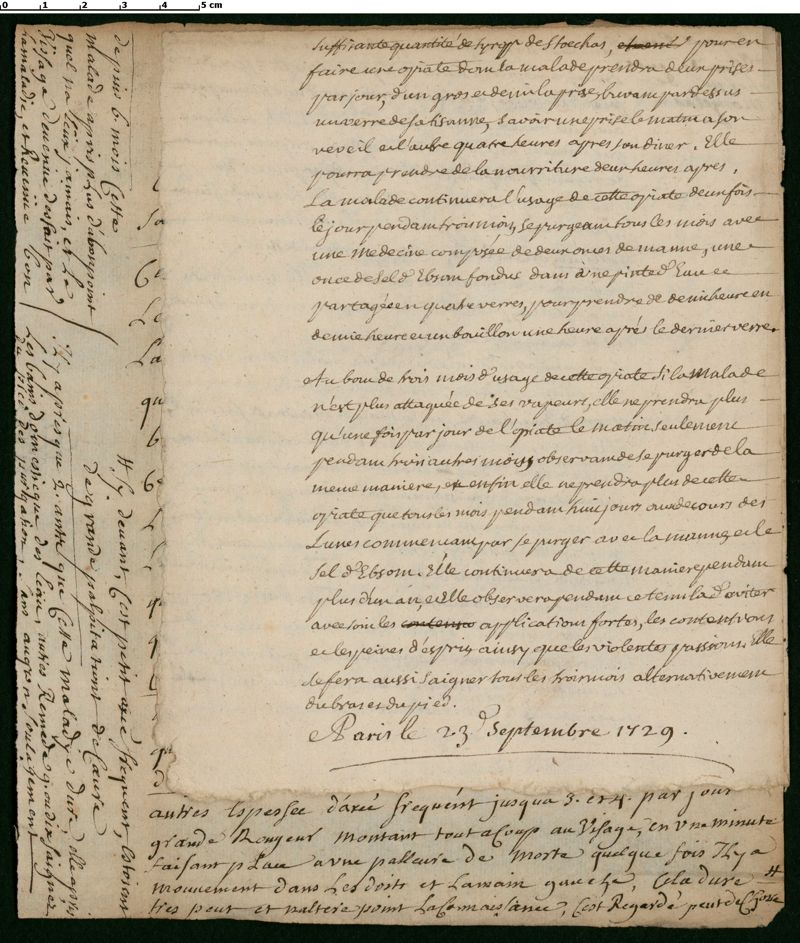 suffisante quantité de syrop de Stoechas, pour en
faire une opiate dont la malade prendra deux prises
par jour, d'un gros et demi la prise, buvant par dessus
un verre de sa tisanne, Savoir une prise le matin a son
reveil et l'autre quatre heures apres son diner. Elle
pourra prendre de la nourriture deux heures apres.
La malade continuera l'usage de cette opiate deux fois
le jour pendant trois mois, se purgeant tous les mois avec
une Medecine composée de deux onces de manne, une
once de Sel d'Ebsom fondus dans une pinte d'Eau et
partagée en quatre verres, pour prendre de demi heure en
demie heure et un bouillon une heure aprés le dernier verre.
Au bout de trois mois d'usage de cette opiate Si la Malade
n'est plus attaquée de Ses vapeurs, elle ne prendra plus
qu'une fois par jour de l'opiate le matin seulement
pendant trois autres mois, observant de se purger de la
meme maniere, et enfin elle ne prendra plus de cette
opiate que tous les mois pendant huit jours au decours des
Lunes commencant par se purger avec la manne et le
Sel d'Ebsom. Elle continuera de cette maniere pendant
plus d'un an, et Elle observera pendant ce tems la d'eviter
avec soin les applications fortes, les contentions
et les peines d'esprit ainsy que les violentes passions. Elle
se fera aussi Saigner tous les trois mois alternativement
du bras et du pied.
A Paris le 23 Septembre 1729.
autres Espesse d'axé frequént jusqua 3. et 4. par jour
grande Rougeur montant tout a Coup au Visage, en vne minute
faisant plaće a vne palleure de Morte quelque fois Il y a
mouvement dans Les doits et La main gauche, Cela dure #
tres peut et naltere point La Connaissance, C'est Regardé peut de Chose
depuis 6. mois Cette
malade apris plus d'anbonpoint
quel na Eux jamais, et Le
Visage devenue desfait par
La maladie, et Revenüe bon
# Cy devant, C'est petit axé frequent, Estoient
de grande palpitations de Cœure
Il y a presque 2. ans que Cette maladye dure, elle apris
Les bains domestique des Eaux, autres Remede